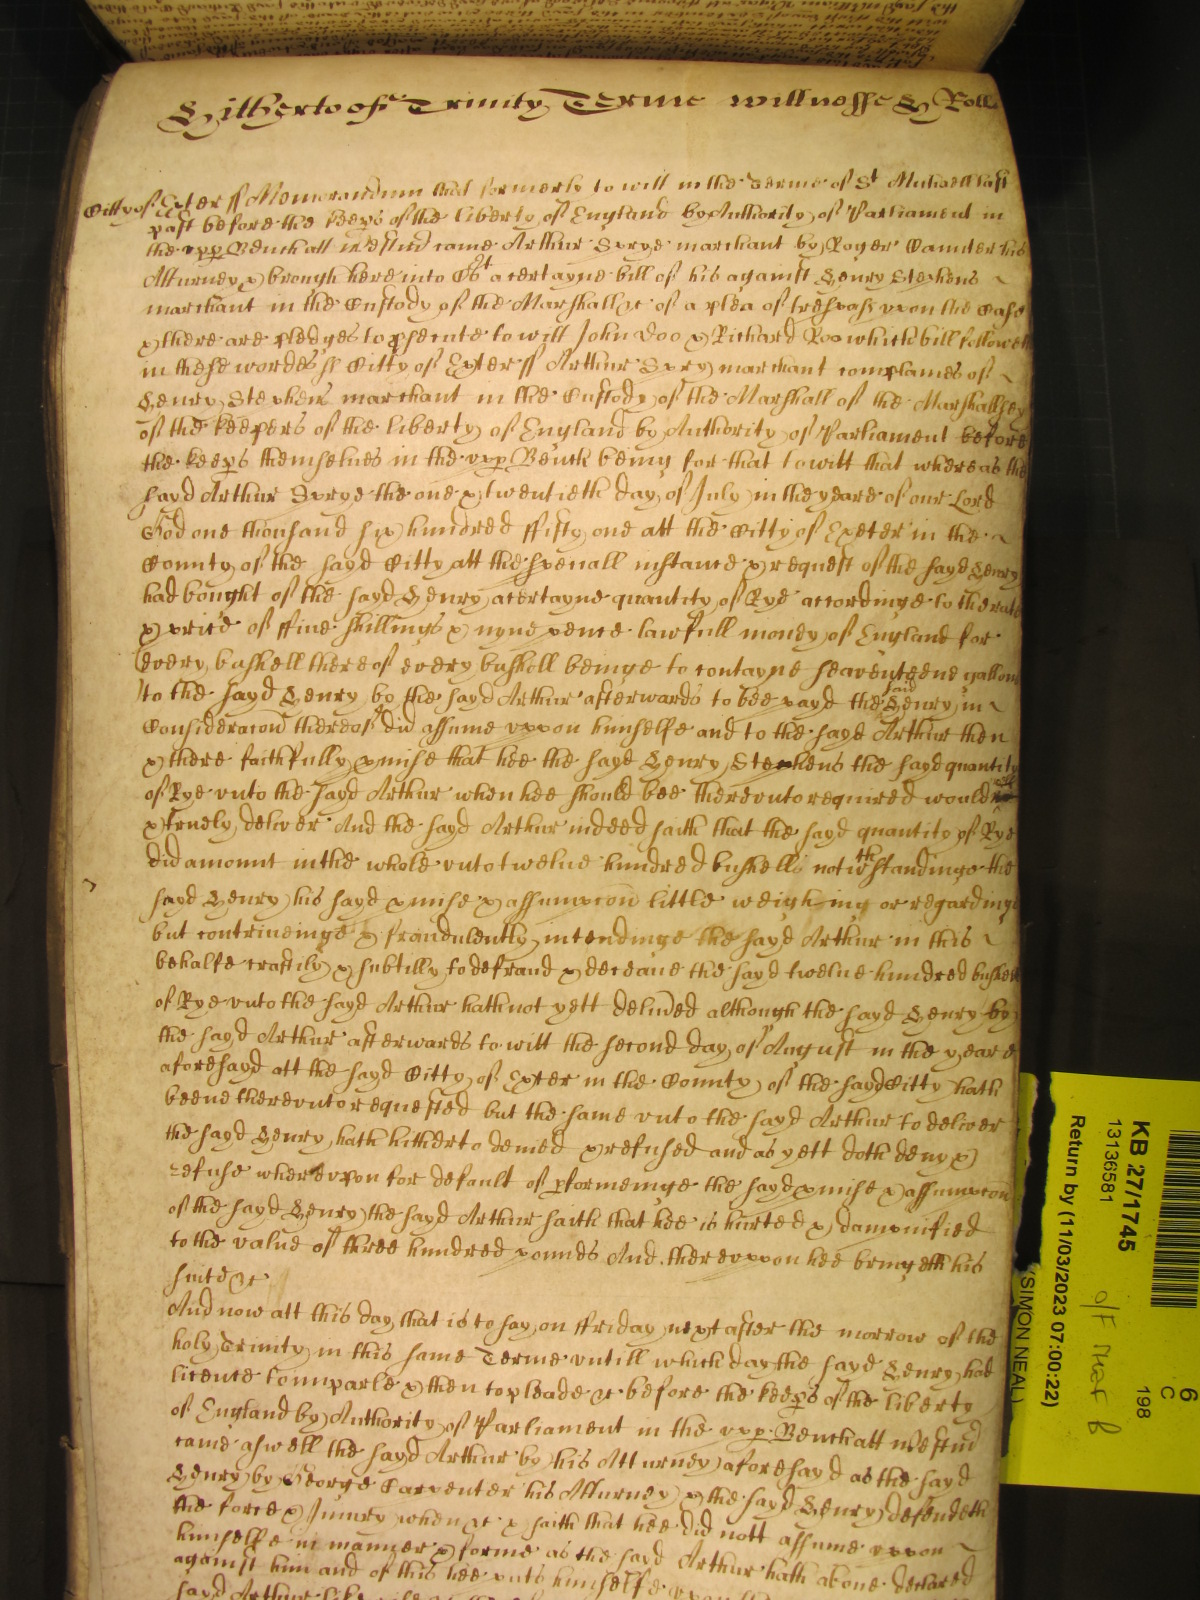 Hitherto of Trinity Terme willnesse H Rolle
Citty of Exter ss Memorandum that formerly to witt in the Terme of St Michaell last
past before the keeps of the liberty of England by Authority of Parliament in
the upp Bench att Westm came Arthur Sprye marchant by Roger his
Atturney & brough here into Cort a certayne bill of his against Henry Stephens
marchant in the Custody of the Marshall &c of a plea of trespass uppon the Case
& there are pledges to psecute to witt John Doo & Richard Roo which bill followeth
in these wordes ss Citty of Exter ss Arthur Spry marchant complaines of
Henry Stephens marchant in the Custody of the Marshall of the Marshallsey
of the keepers of the liberty of England by Authority of Parliament before
the keeps themselues in the upp Bench being for that to witt that whereas the
sayd Arthur Sprye the one & twentieth day of July in the yeare of our Lord
God one thousand six hundred ffifty one att the Citty of Exeter in the
County of the sayd Citty att the speciall instance & request of the sayd Henry
had bought of the sayd Henry a certayne quantity of Rye accordinge to the rate
& price of ffiue shillings & nyne pence lawfull money of England for
every bushell thereof every bushell beinge to contayne seaventeene gallons
to the sayd Henry by the sayd Arthur afterwards to bee payd the said Henry in
Consideracon thereof did assume uppon himselfe and to the sayd Arthur then
& there faithfully pmise that hee the sayd Henry Stephens the sayd quantity
of Rye unto the sayd Arthur when hee should bee thereunto required would well
& truely deliver And the sayd Arthur indeed saith that the sayd quantity of Rye
did amount in the whole unto twelue hundred bushells notwithstandinge the
sayd Henry his sayd pmise & assumpcon little weighing or regardinge
but contriueinge & fraudulently intendinge the sayd Arthur in this
behalfe craftily & subtilly to defraud & deceaue the sayd twelue hundred bushells
of Rye unto the sayd Arthur hath not yett deliued although the sayd Henry by
the sayd Arthur afterwards to witt the second day of August in the yeare
aforesayd att the sayd Citty of Exter in the County of the sayd Citty hath
beene thereunto requested but the same unto the sayd Arthur to deliver
the sayd Henry hath hitherto denied & refused and as yett doth deny &
refuse whereupon for default of pformeinge the sayd pmise & assumpcon
of the sayd Henry the sayd Arthur saith that hee is hurted & dampnified
to the value of three hundred pounds And thereuppon hee bringeth his
suite &c
And now att this day that is to say on ffriday next after the morrow of the
holy Trinity in this same Terme untill which day the sayd Henry had
licence to imparle & then to pleade &c before the keeps of the liberty
of England by Authority of Parliament in the upp Bench att Westm
came aswell the sayd Arthur by his Atturney aforesayd as the sayd
Henry by George Carpenter his Atturney & the sayd Henry defendeth
the force & Iniury when &c & saith that hee did nott assume uppon
himselfe in manner & forme as the sayd Arthur hath aboue declared
against him and of this hee puts himselfe uppon the
sayd Arthur
KB 27/1745
13136581
Return by (11/03/2023 07:00:22)
(SIMON NEAL)
6
C
198